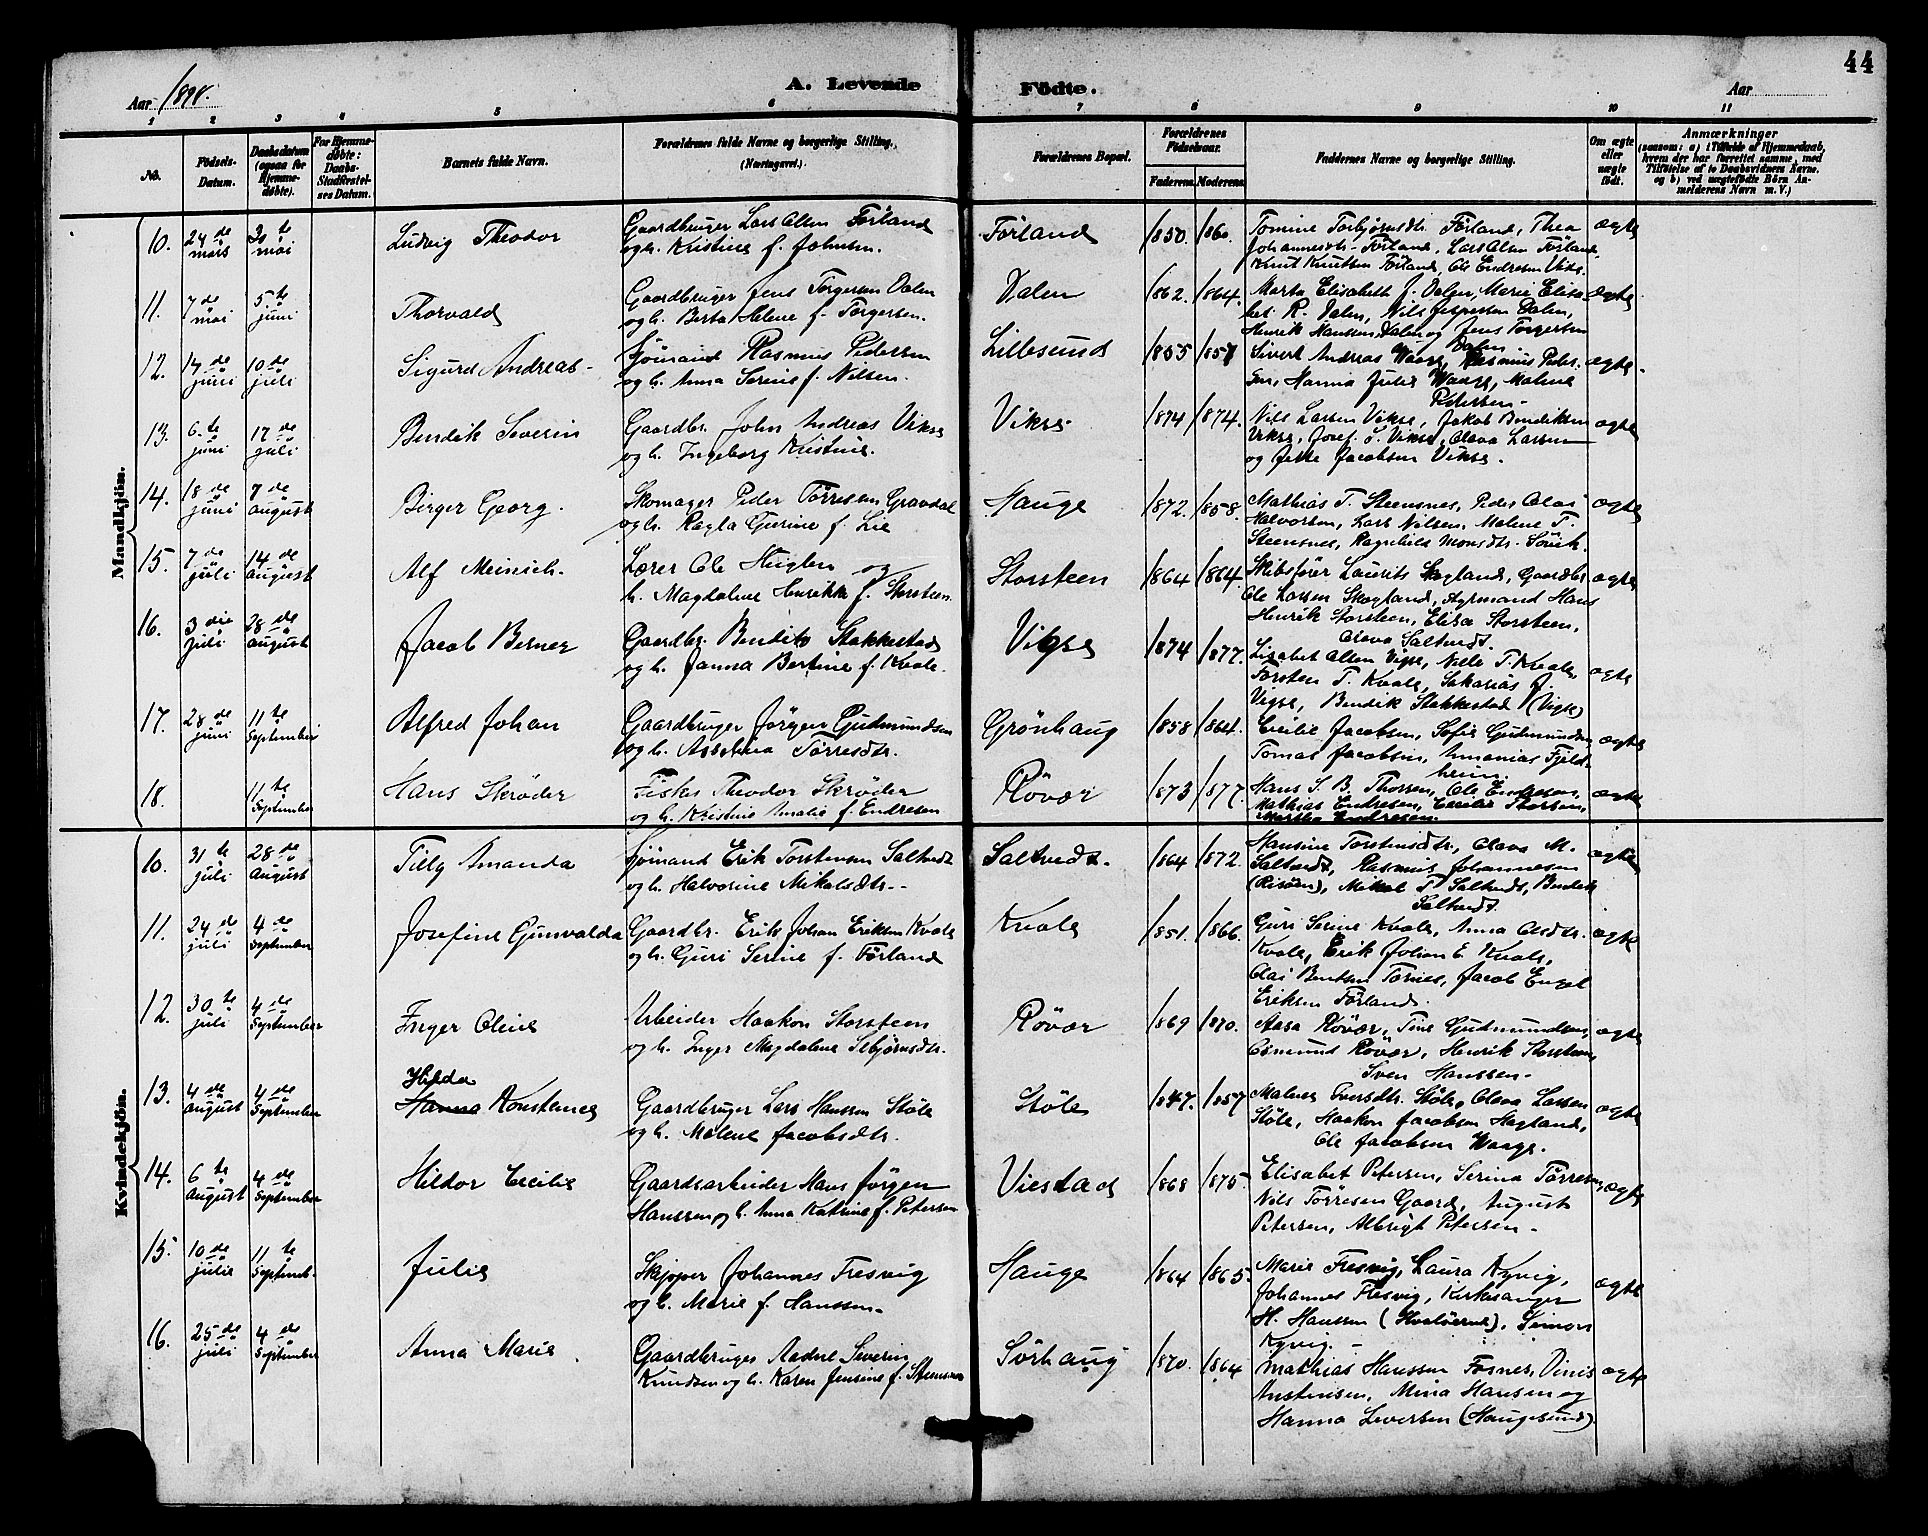 44
Aar 1898.
A. Levende Fødte.
Aar
1 2 3 4 5 6 7 8 9 10 11
No.
Fødsels-Datum.
Daabsdatum (ogsaa for Hjemmedøbte).
For Hjemmedøbte: Daabs-Stadfæstelses Datum.
Barnets fulde Navn.
Forældrenes fulde Navne og borgerlige Stilling, (Næringsvei.)
Forældrenes Bopæl.
Forældrenes Fødselsaar.
Faderens. Moderens.
Faddernes Navne og borgerlige Stilling.
Om ægte eller uægte født.
Anmærkninger
(saasom: a) i Tilfælde af Hjemmedaab,
hvem der har forrettet samme, med
Tilføielse af to Daabsvidners Navne,
og b) ved uægtefødte Børn An-
melderens Navn m. V.)
Mandkjön.
10. 24de mars 30te mai Ludvig Theodor Gaardbruger Lars Olsen Førland og h. Kristine f. Johnsen. Førland 1850. 1860. Tomine Torbjørnsdtr. Førland, Thea
Johannesdtr. Førland, Lars Olsen Førland, ægte
Knut Knutsen Førland, Ole Endresen Vikse.
11. 7de mai 5te juni Thorvald Gaardbruger Jens Torgersen Dalen og h. Berta Helene f. Torgersen. Dalen 1862. 1864. Marta Elisabeth J. Dalen, Marie Elisa-
bet R. Dalen, Nils Jespersen Dalen, ægte
Henrik Hansen Dalen og Jens Torgersen
Dalen
12. 14de juni 10de juli Sigurd Andreas Sjømand Rasmus Pedersen og h. Anna Serine f. Nilsen. Lillesund 1855 1857 Sivert Andreas Waage, Rasmus Peder-
sen, Hanna Julie Waage, Malene ægte
Pedersen
13. 6te juni 17de juli Bendik Severin Gaardbr. John Andreas Vikse og h. Ingeborg Kristine. Vikse 1874 1874. Nils Larsen Vikse, Jakob Bendiksen
Vikse, Josef O. Vikse, Olava Larsen ægte
og Jette Jacobsen Vikse.
14. 18de juni 7de august Birger Georg. Skomager Peder Tørresen Gravdal og h. Ragla Gurine f. Lie Hauge 1872. 1858. Mathias T. Steensnes, Peder Olai
Halvorsen, Lars Nilsen, Malene T. ægte
Steensnes, Ragnhild Monsdtr. Søvik.
15. 7de juli 14de august Alf Meinich. Lærer Ole Huglen og h. Magdalene Henrikke f. Storsteen. Storsteen 1864 1864. Skibsfører Laurits Skogland, Gaardbr.
Ole Larsen Skogland, Agrmand Hans ægte
Henrik Storsteen, Elisa Storsteen,
Olava Saltvedt.
16. 3die juli 28de august Jacob Berner Gaardbr. Bendik Stakkestad og h. Janna Bertine f. Kvale. Vigse 1874 1877. Lisabet Olsen Vigse, Nille T. Kvale,
Torsten T. Kvale, Sakarias J. ægte
Vigse, Bendik Stakkestad (Vigse)
17. 28de juni 11te September Alfred Johan Gaardbruger Jørgen Gudmundsen og h. Asseline Tørresdtr. Grønhaug 1858 1864. Cecilie Jacobsen, Sofie Gudmundsen,
Tomas Jacobsen, Ananias Fjeld- ægte
heim.
18. 11te September Hans Skrøder Fisker Theodor Skrøder og h. Kristine Amalie f. Endresen Røvær 1873 1877. Hans S. B. Thorsen, Ole Endresen, ægte
Mathias Endresen, Cecilie Thorsen,
Martha Endresen.
Kvindekjön.
10. 31te juli 28de August Tilly Amanda Sjømand Erik Torstensen Saltvedt og h. Halvorine Mikalsdtr. Saltvedt. 1864 1872. Hansine Torstensdtr., Olava M.
Saltvedt, Rasmus Johannesen ægte
(Risøen), Mikal T. Saltvedt, Bendik
Saltvedt.
11. 24de juli 4de September Josefine Gunvalda Gaardbr. Erik Johan Eriksen Kvale og h. Guri Serine f. Førland Kvale 1851. 1866. Guri Serine Kvale, Anna Olsdtr.
Kvale, Erik Johan E. Kvale, ægte
Olai Bentsen Tornes, Jacob Engel
Eriksen Førland.
12. 30te juli 4de September Inger Oline Arbeider Haakon Storsteen og h. Inger Magdalene Sebjørnsdtr. Røvær 1869 1870. Aasa Røvær, Tine Gudmundsen,
Osmund Røvær, Henrik Storsteen, ægte
Sven Hanssen.
13. 4de august 4de September Hilda
Hanna Konstence Gaardbruger Lars Hanssen Støle og h. Malene Jacobsdtr. Støle 1847. 1857 Malene Iversdtr. Støle, Olava Larsen
Støle, Haakon Jacobsen Hagland, ægte
Ole Jacobsen Waage.
14. 6te August 4de September Hildor Cecilie Gaardsarbeider Hans Jørgen Hanssen og h. Anna Katrine f. Petersen Viestad 1868 1875. Elisabet Petersen, Serina Tørresen, ægte
Nils Tørresen Gaard, August
Petersen, Albrigt Petersen.
15. 10de julie 11te Septemb. Julie Skipper Johannes Fresvig og h. Marie f. Hanssen. Hauge 1864 1865. Marie Fresvig, Laura Kyvig,
Johannes Fresvig, Kirkesanger ægte
H. Hanssen (Hvaløerne), Simon
Kyvig.
16. 25de juli 4de September Anna Marie Gaardbruger Aadne Severin Knudsen og h. Karen Jensine f. Stensnes Sørhaug 1870. 1864 Mathias Hanssen Fosnes, Dinis
Anstensen, Mina Hansen og ægte
Hanna Severtsen (Haugesund).